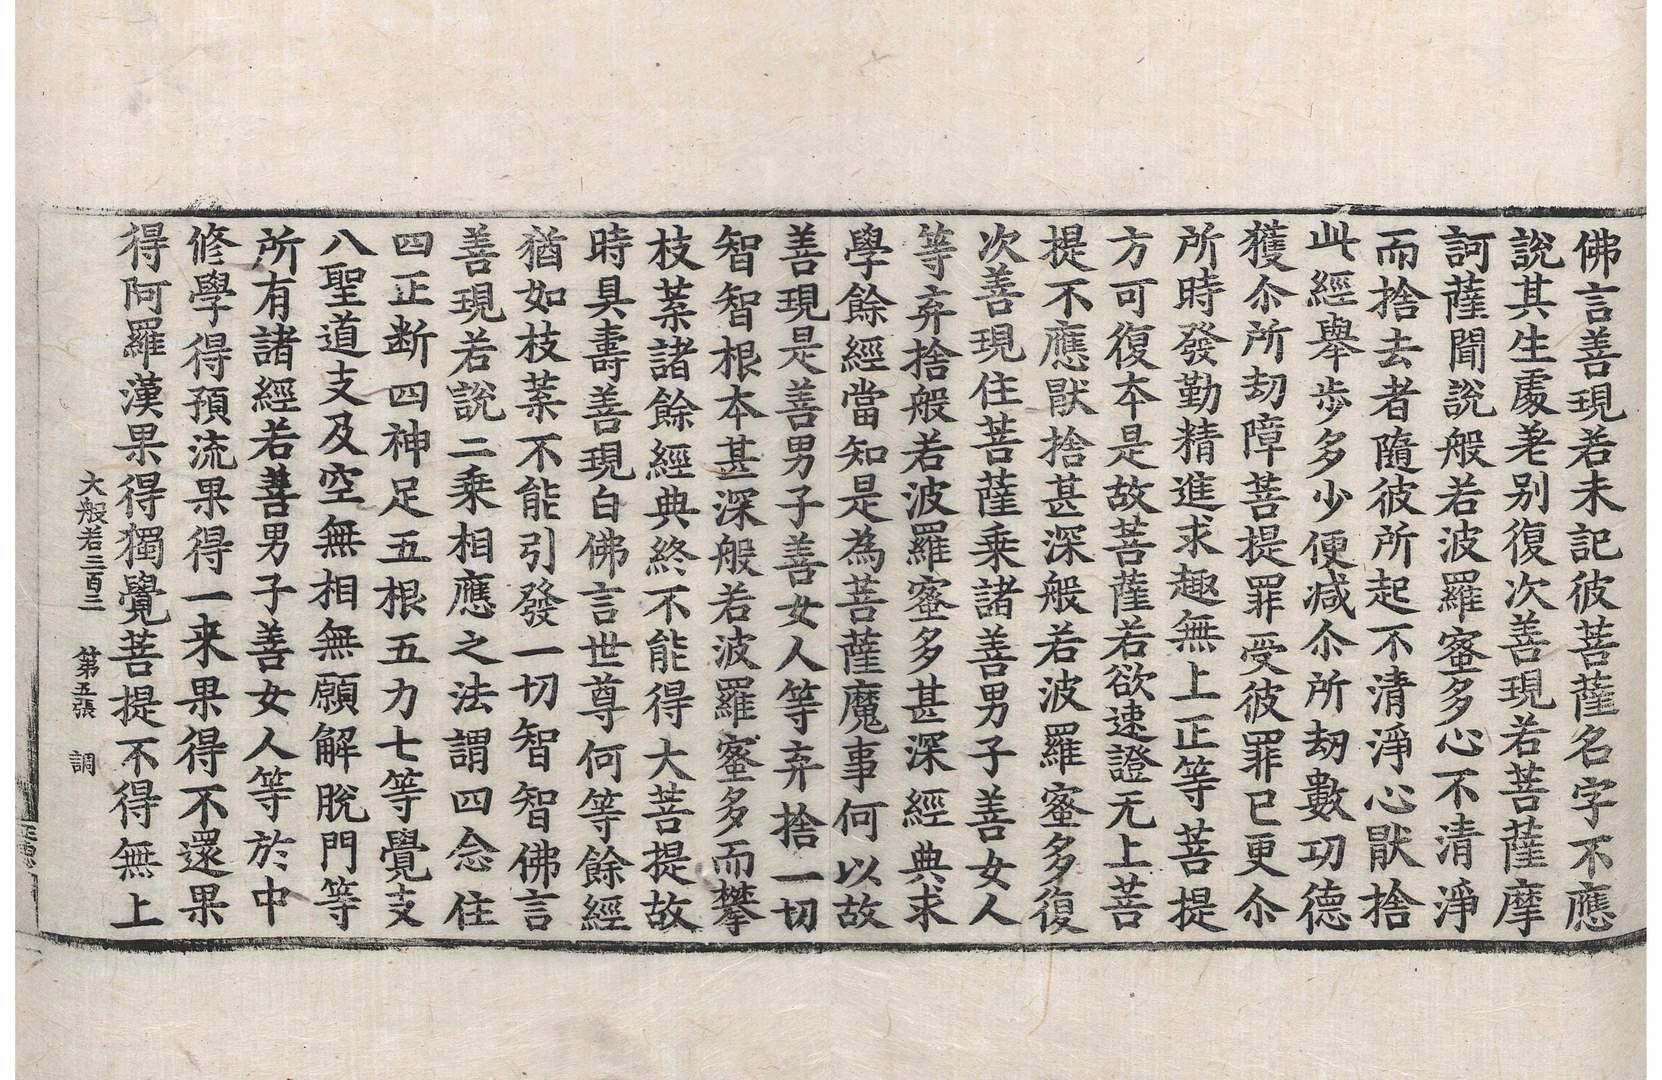 佛言善現若未記彼菩薩名字不應
說其生處差别復次善現若菩薩摩
訶薩聞說般若波羅蜜多心不清淨
而捨去者隨彼所起不清淨心猒捨
此經舉步多少便减尒所劫數功德
獲尒所劫障菩提罪受彼罪已更尒
所時發勤精進求趣無上正等菩提
方可復本是故菩薩若欲速證无上菩
提不應猒捨甚深般若波羅蜜多復
次善現住菩薩乘諸善男子善女人
等弃捨般若波羅蜜多甚深經典求
學餘經當知是為菩薩魔事何以故
善現是善男子善女人等弃捨一切
智智根本甚深般若波羅蜜多而攀
枝葉諸餘經典終不能得大菩提故
時具壽善現白佛言世尊何等餘經
猶如枝葉不能引發一切智智佛言
善現若說二乘相應之法謂四念住
四正断四神足五根五力七等覺支
八聖道支及空無相無願解脫門等
所有諸經若善男子善女人等於中
修學得預流果得一来果得不還果
得阿羅漢果得獨覺菩提不得無上
大般若三百三 第五張 調